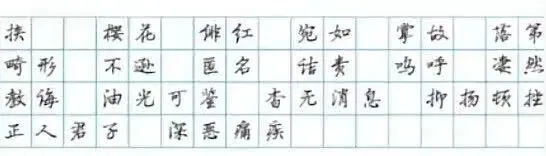 挨 樱花 绯红 宛如 掌故 落第
畸形 不逊 匿名 诘责 呜呼 凄然
教诲 油光可鉴 杳无消息 抑扬顿挫
正人君子 深恶痛疾